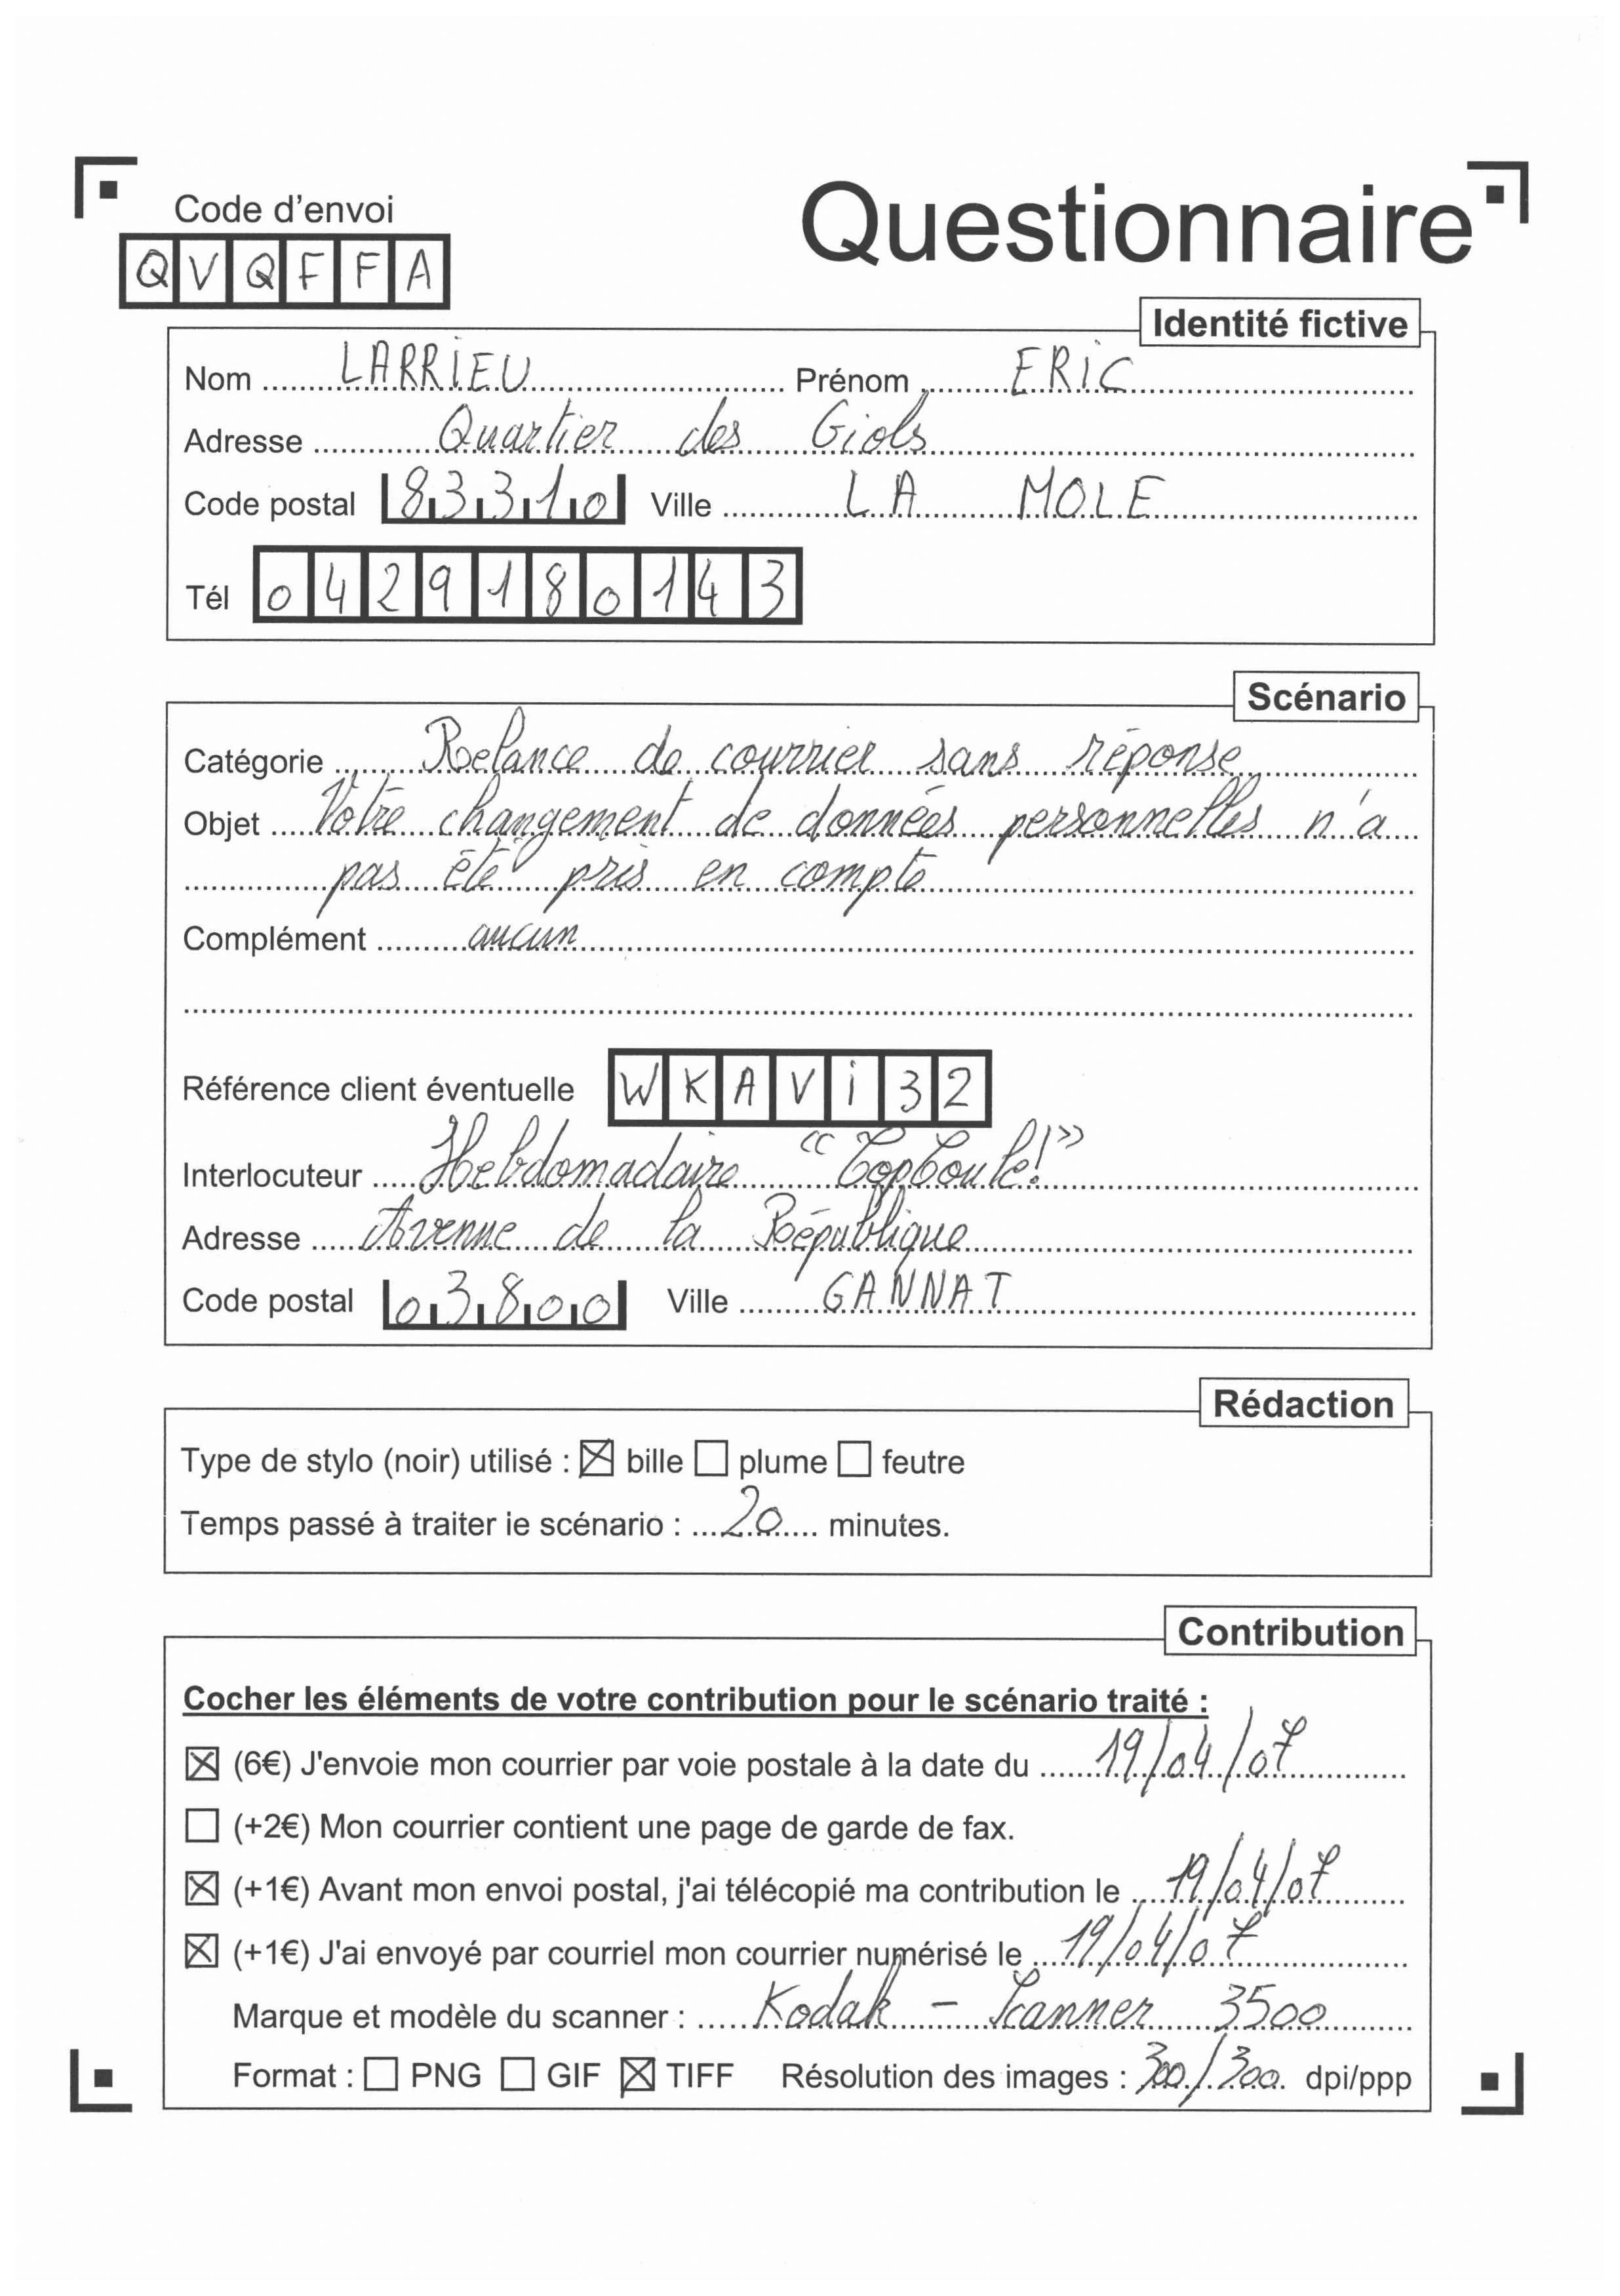 Code d'envoi
Questionnaire
QVQFFA
Identité fictive
Nom LARRIEU Prénom ERIC
Adresse Quartier des Giols
Code postal 83310 Ville LA MOLE
Tél 0429180143
Scénario
Catégorie Relance de courrier sans réponse
Objet Votre changement de données personnelles n'a
pas été pris en compte
Complément aucun
Référence client éventuelle WKAVi32
Interlocuteur Hebdomadaire "TopBoule!"
Adresse Avenue de la République
Code postal 03800 Ville GANNAT
Rédaction
Type de stylo (noir) utilisé : ☒ bille ☐ plume ☐ feutre
Temps passé à traiter le scénario : 20 minutes.
Contribution
Cocher les éléments de votre contribution pour le scénario traité :
☒ (6€) J'envoie mon courrier par voie postale à la date du 19/04/07
☐ (+2€) Mon courrier contient une page de garde de fax.
☒ (+1€) Avant mon envoi postal, j'ai télécopié ma contribution le 19/04/07
☒ (+1€) J'ai envoyé par courriel mon courrier numérisé le 19/04/07
Marque et modèle du scanner : Kodak - Scanner 3500
Format : ☐ PNG ☐ GIF ☒ TIFF Résolution des images : 300/300 dpi/ppp